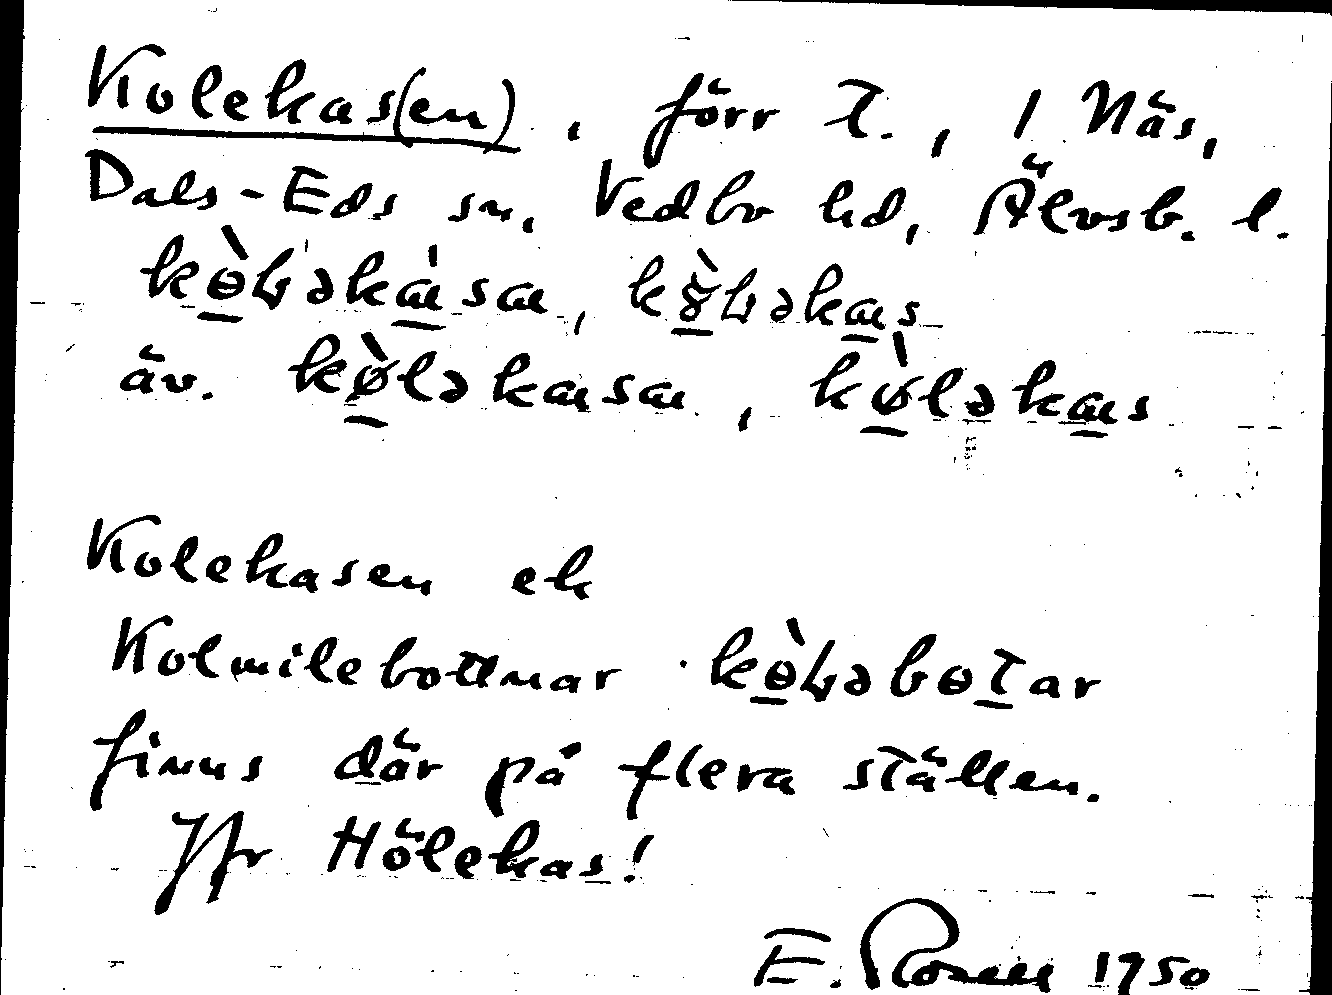 Kolekas(en), förr t., 1 Näs,
Dals-Eds sn, Vedbo hd, Älvsb. l.
kɵ̀ɽəkàsa, kɤ̀ɽəkas
äv. kø̀ləkasa, kø̀ləkas
Kolekasen ek
Kolmilebottnar kɵ̀ɽəbɵtar
finns där på flera ställen.
Jfr Hölekas!
E. Rosell 1950